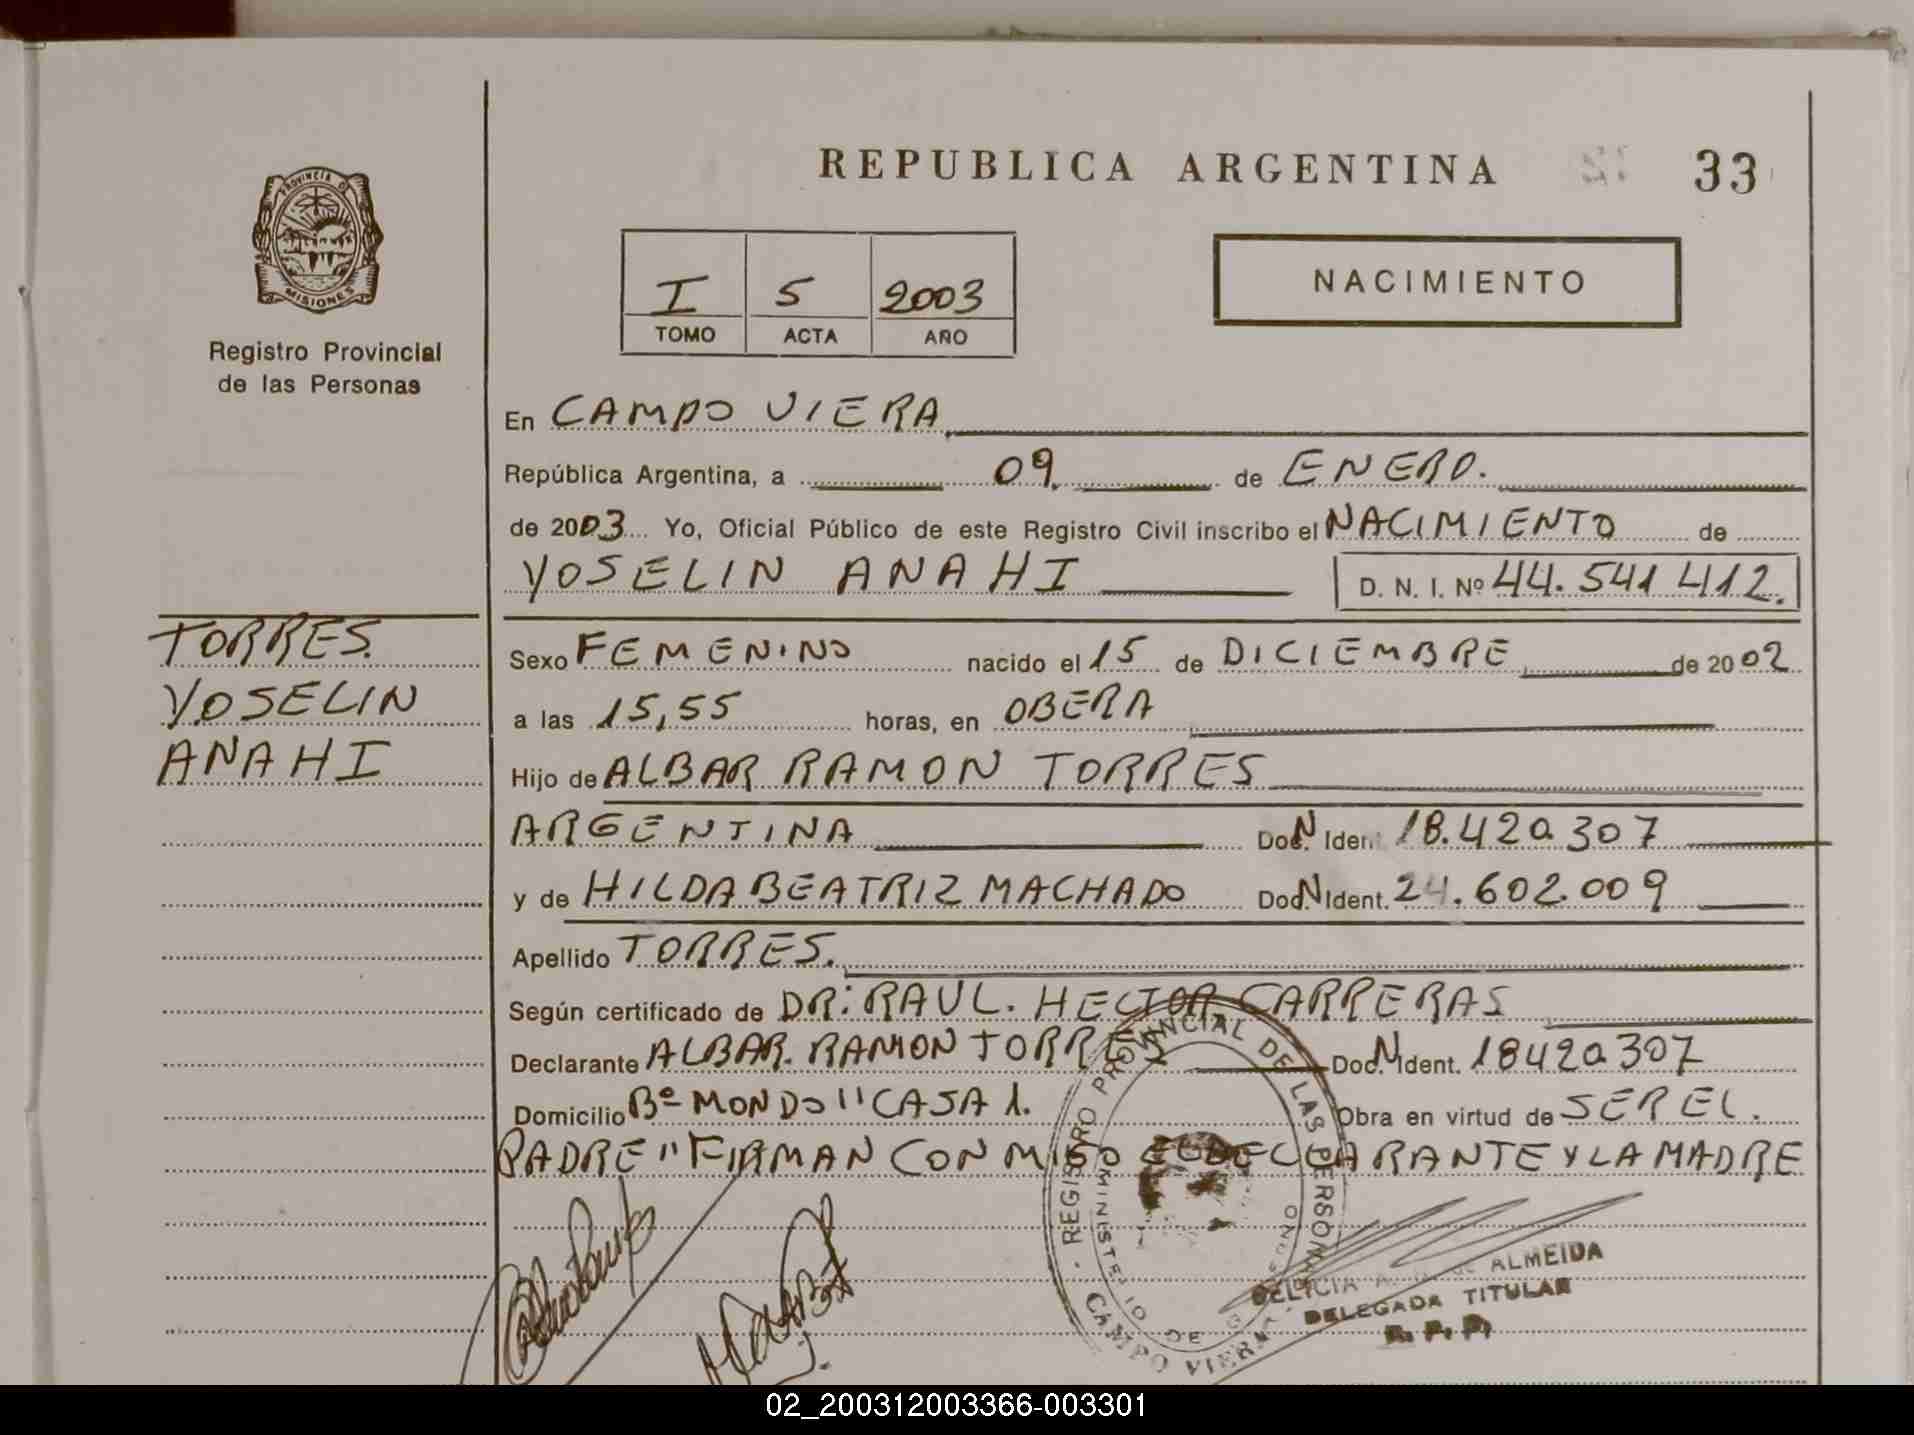 REPUBLICA ARGENTINA 33
PROVINCIA D
MISIONES
Registro Provincial
de las Personas
I 5 2003
TOMO ACTA AÑO
NACIMIENTO
En CAMPO VIERA
República Argentina, a 09 de ENERO.
de 2003 Yo, Oficial Público de este Registro Civil inscribo el NACIMIENTO de
YOSELIN ANAHI D. N. I. Nº 44.541 412.
TORRES.
YOSELIN
ANAHI
Sexo FEMENINO nacido el 15 de DICIEMBRE de 2002
a las 15,55 horas, en OBERA
Hijo de ALBAR RAMON TORRES
ARGENTINA Doc. N Ident. 18.420.307
y de HILDA BEATRIZ MACHADO Doc. N Ident. 24.602.009
Apellido TORRES.
Según certificado de DR: RAUL. HECTOR CARRERAS
Declarante ALBAR. RAMON TORRES Doc. N Ident. 18420307
Domicilio Bº MONDO" CASA 1. Obra en virtud de SER EL.
PADRE" FIRMAN CONMIGO EL DECLARANTE Y LA MADRE
REGISTRO PROVINCIAL DE LAS PERSONAS
MINISTERIO DE
CAMPO VIERA
ALMEIDA
DELEGADA TITULAR
R. P. P.
02_200312003366-003301